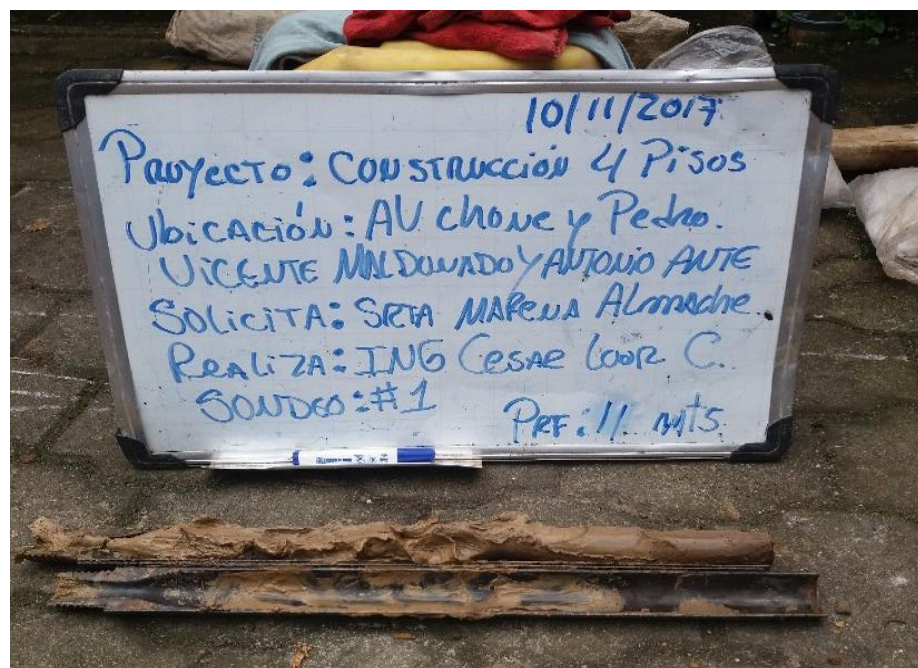 10/11/2017
Proyecto: Construcción 4 Pisos
Ubicación: AV Chone y Pedro.
Vicente Maldonado y Antonio Ante
Solicita: SRTA Marena Almache
Realiza: ING Cesar Loor C.
Sondeo: #1 Prf: 11 mts